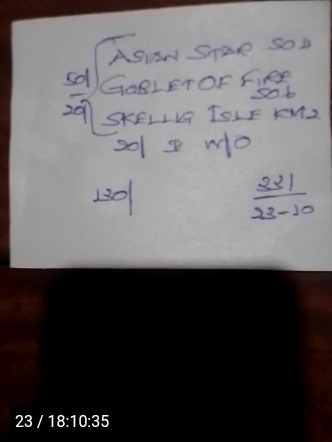 ASIAN STAR SOB
50/ GOBLET OF FIRE
SOB
20/ SKELLIG ISLE KM2
20/ D W/O
130/
331
23-10
23 / 18:10:35